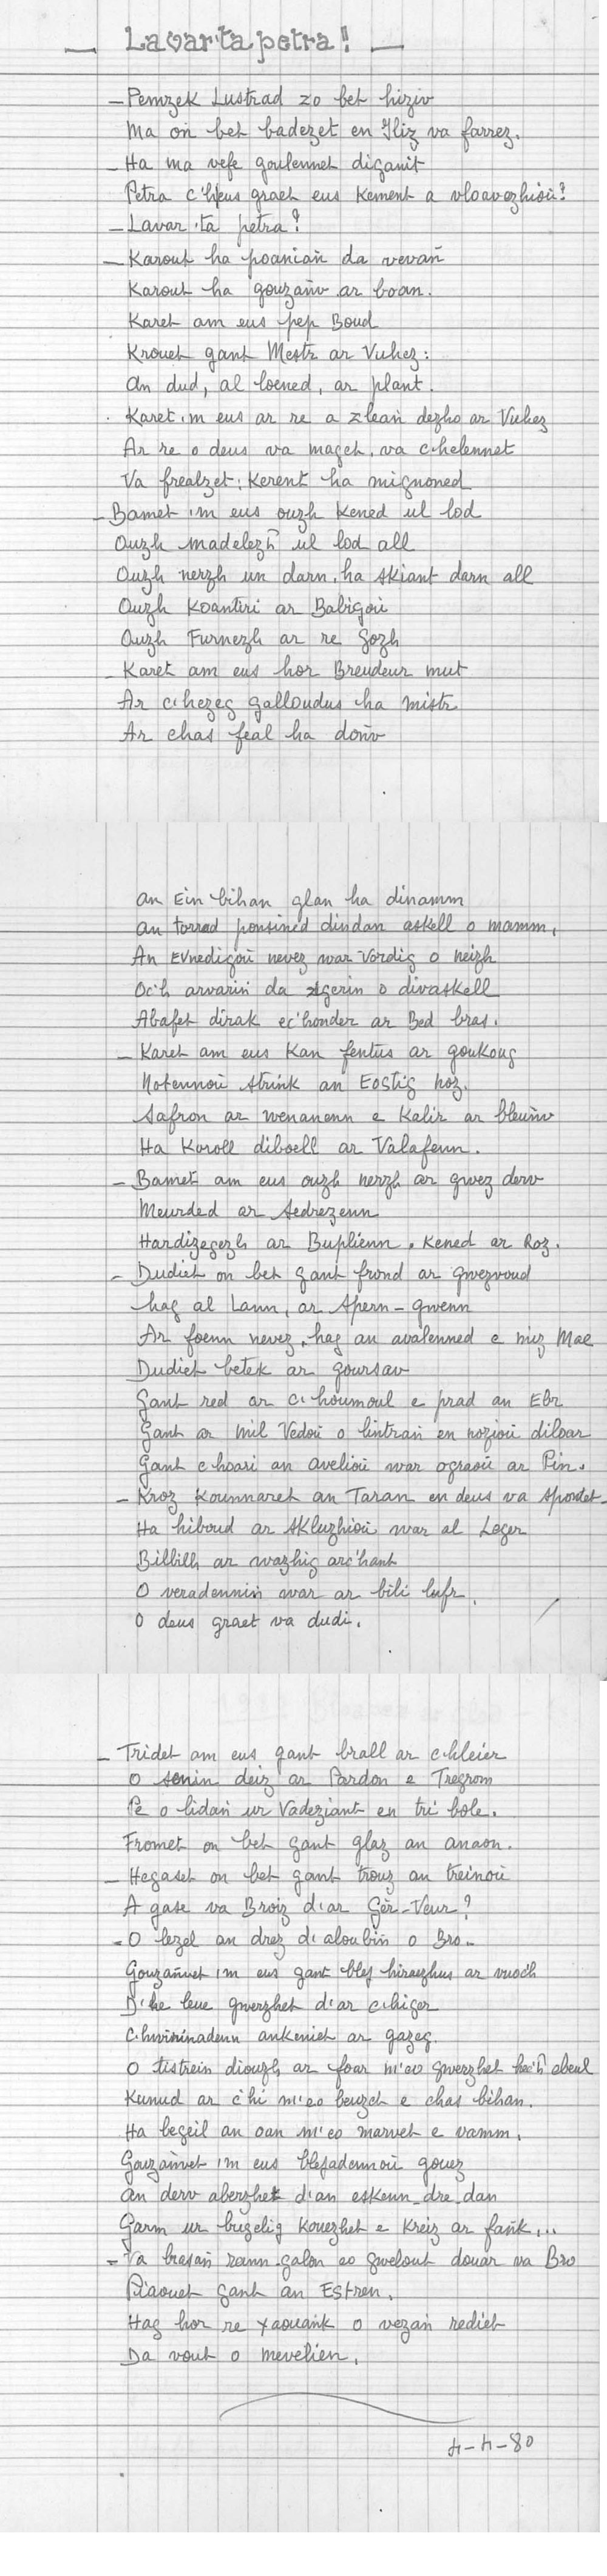 — Lavar'ta petra! —
— Pemzek Lustrad zo bet hiziv
Ma on bet badezet en Iliz va farrez.
— Ha ma vefe goulennet diganit
Petra c'heus graet eus Kement a vloavezhioù?
— Lavar 'ta petra?
— Karout ha poaniañ da vevañ
Karout ha gouzañv ar boan.
Karet am eus pep Boud
Krouet gant Mestr ar Vuhez:
An dud, al loened, ar plant.
Karet 'm eus ar re a zlean dezho ar Vuhez
Ar re o deus va maget, va c'helennet
Va frealzet: Kerent ha mignoned
— Bamet 'm eus ouzh Kened ul lod
Ouzh madelezh ul lod all
Ouzh nerzh un darn, ha skiant darn all
Ouzh Koantiri ar Babigoù
Ouzh Furnezh ar re Gozh
— Karet am eus hor Breudeur mut
Ar c'hezeg galloudus ha mistr
Ar chas feal ha doñv
An Ein bihan glan ha dinamm
An torrad ponsined dindan askell o mamm,
An Evnedigoù nevez war vordig o neizh
Oc'h arvariñ da zigeriñ o divaskell
Abafet dirak ec'honder ar Bed bras.
— Karet am eus Kan fentus ar goukoug
Notennoù strink an Eostig noz.
Safron ar wenanenn e Kalir ar bleuñv
Ha Koroll diboell ar Valafenn.
— Bamet am eus ouzh nerzh ar gwez derv
Meurded ar Sedrezenn
Hardizegezh ar Buplienn, Kened ar Roz.
— Dudiet on bet gant frond ar gwezvoud
hag al Lann, ar Spern-gwenn
Ar foenn nevez, hag an avalenned e miz Mae
Dudiet betek ar goursav
Gant red ar c'houmoul e prad an Ebr
Gant ar mil Vedoù o lintrañ en nozioù diloar
Gant c'hoari an avelioù war ograoù ar Pin.
— Kroz Kounnaret an Taran en deus va spontet
Ha hiboud ar Skluzhioù war al Leger
Billilh ar wazhig arc'hant
O veradennin war ar bili lufr,
O deus graet va dudi.
— Tridet am eus gant brall ar c'hleier
O seniñ deiz ar Pardon e Tregrom
Pe o lidañ ur Vadeziant en tri bole.
Fromet on bet gant glaz an anaon.
— Hegaset on bet gant trouz an treinoù
A gase va Broiz d'ar Gêr-Veur?
— O lezel an drez d'aloubiñ o Bro.
Gouzañvet 'm eus gant blej hiraezhus ar vuoc'h
D'he leue gwerzhet d'ar c'higer
C'hwirinadenn ankeniet ar gazeg.
O tistreiñ diouzh ar foar m'eo gwerzhet hec'h ebeul
Kunud ar c'hi m'eo beuzet e chas bihan.
Ha begeil an oan m'eo marvet e vamm.
Gouzañvet 'm eus blejadennoù gouez
An derv aberzhet d'an eskenn-dre-dan
Garm ur bugelig Kouezhet e Kreiz ar fank...
— Va brasañ rann-galon eo gwelout douar va Bro
Piaouet gant an Estren,
Hag hor re Yaouank o vezañ rediet
Da vout o mevelien.
4-4-80